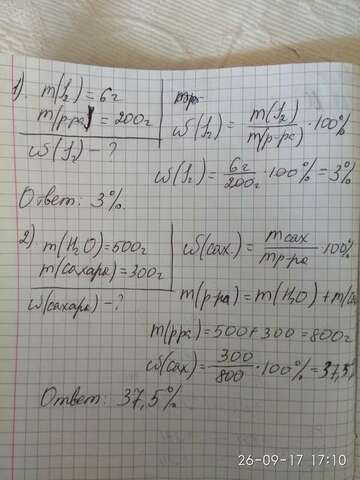 1) m(J₂) = 6г
m(р-ра) = 200г
ω(J₂) - ?
ω(J₂) = m(J₂) / m(р-ра) · 100%
ω(J₂) = 6г / 200г · 100% = 3%
Ответ: 3%.
2) m(H₂O) = 500г
m(сахара) = 300г
ω(сахара) - ?
ω(сах.) = m сах / m р-ра · 100%
m(р-ра) = m(H₂O) + m(са
m(р-ра) = 500 + 300 = 800г
ω(сах) = 300 / 800 · 100% = 37,5
Ответ: 37,5%
26-09-17 17:10